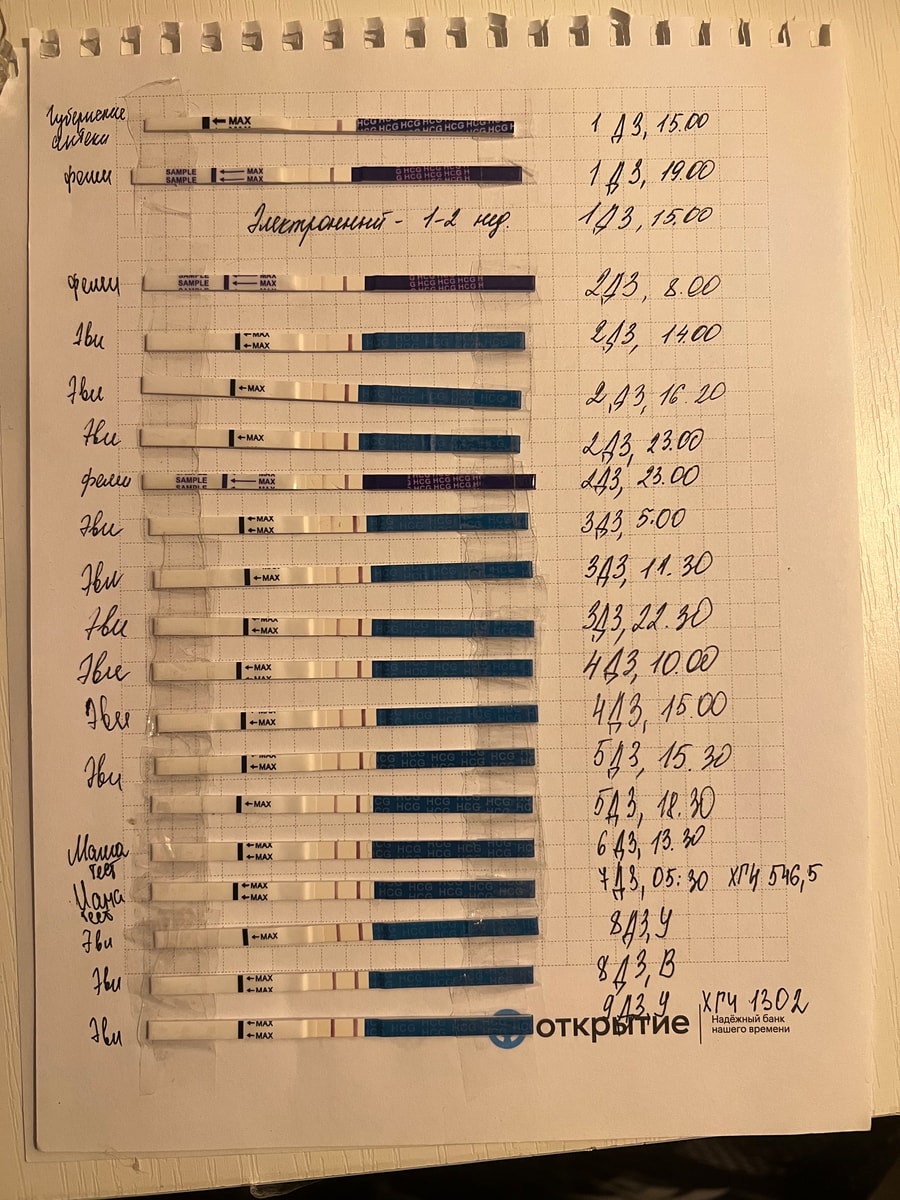 Губернские аптеки
← MAX HCG HCG HCG HCG HCG 1 ДЗ, 15.00
фемм SAMPLE SAMPLE MAX MAX HCG HCG HCG H 1 ДЗ, 19.00
Электронный - 1-2 нед. 1ДЗ, 15.00
фемм SAMPLE MAX MAX HCG HCG HCG H 2ДЗ, 8.00
Эви MAX ←MAX 2ДЗ, 14.00
Эви ←MAX HCG 2ДЗ, 16.20
Эви ←MAX 2ДЗ, 23.00
фемм SAMPLE MAX MAX HCG HCG HCG H 2ДЗ, 23.00
Эви ←MAX ←MAX 3ДЗ, 5.00
Эви ←MAX 3ДЗ, 11.30
Эви MAX ←MAX 3ДЗ, 22.30
Эви ←MAX 4ДЗ, 10.00
Эви ←MAX 4ДЗ, 15.00
Эви MAX ←MAX HCG HCG HCG 5ДЗ, 15.30
←MAX HCG HCG HCG HCG 5ДЗ, 18.30
Мама тест ←MAX ←MAX HCG HCG HCG 6ДЗ, 13.30
Мама тест ←MAX ←MAX HCG HCG HCG 7ДЗ, 05:30 ХГЧ 546,5
Эви ←MAX HCG HCG HCG 8ДЗ, У
Эви ←MAX 8ДЗ, В
9ДЗ, У ХГЧ 1302
Эви ←MAX ←MAX
открытие
Надёжный банк
нашего времени